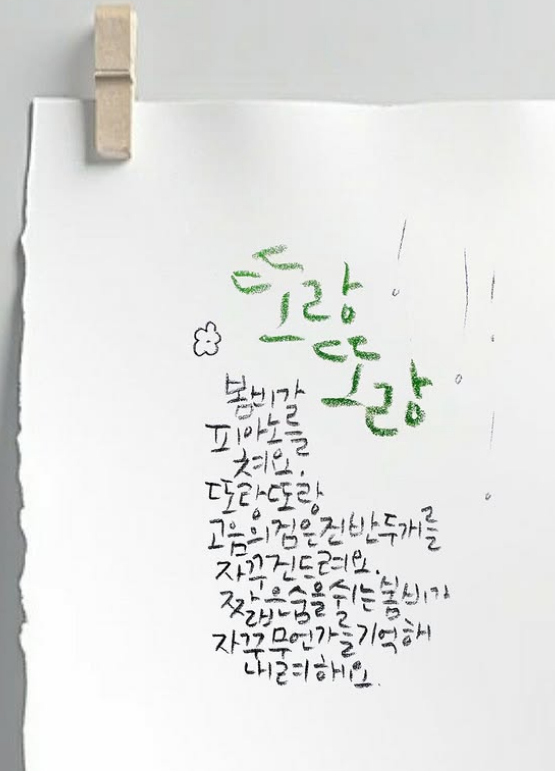 또랑
또랑
봄비가
피아노를
쳐요.
또랑또랑
고음의 검은 건반 두개를
자꾸 건드려요.
짧은 숨을 쉬는 봄비가
자꾸 무언가를 기억해
내려 해요.